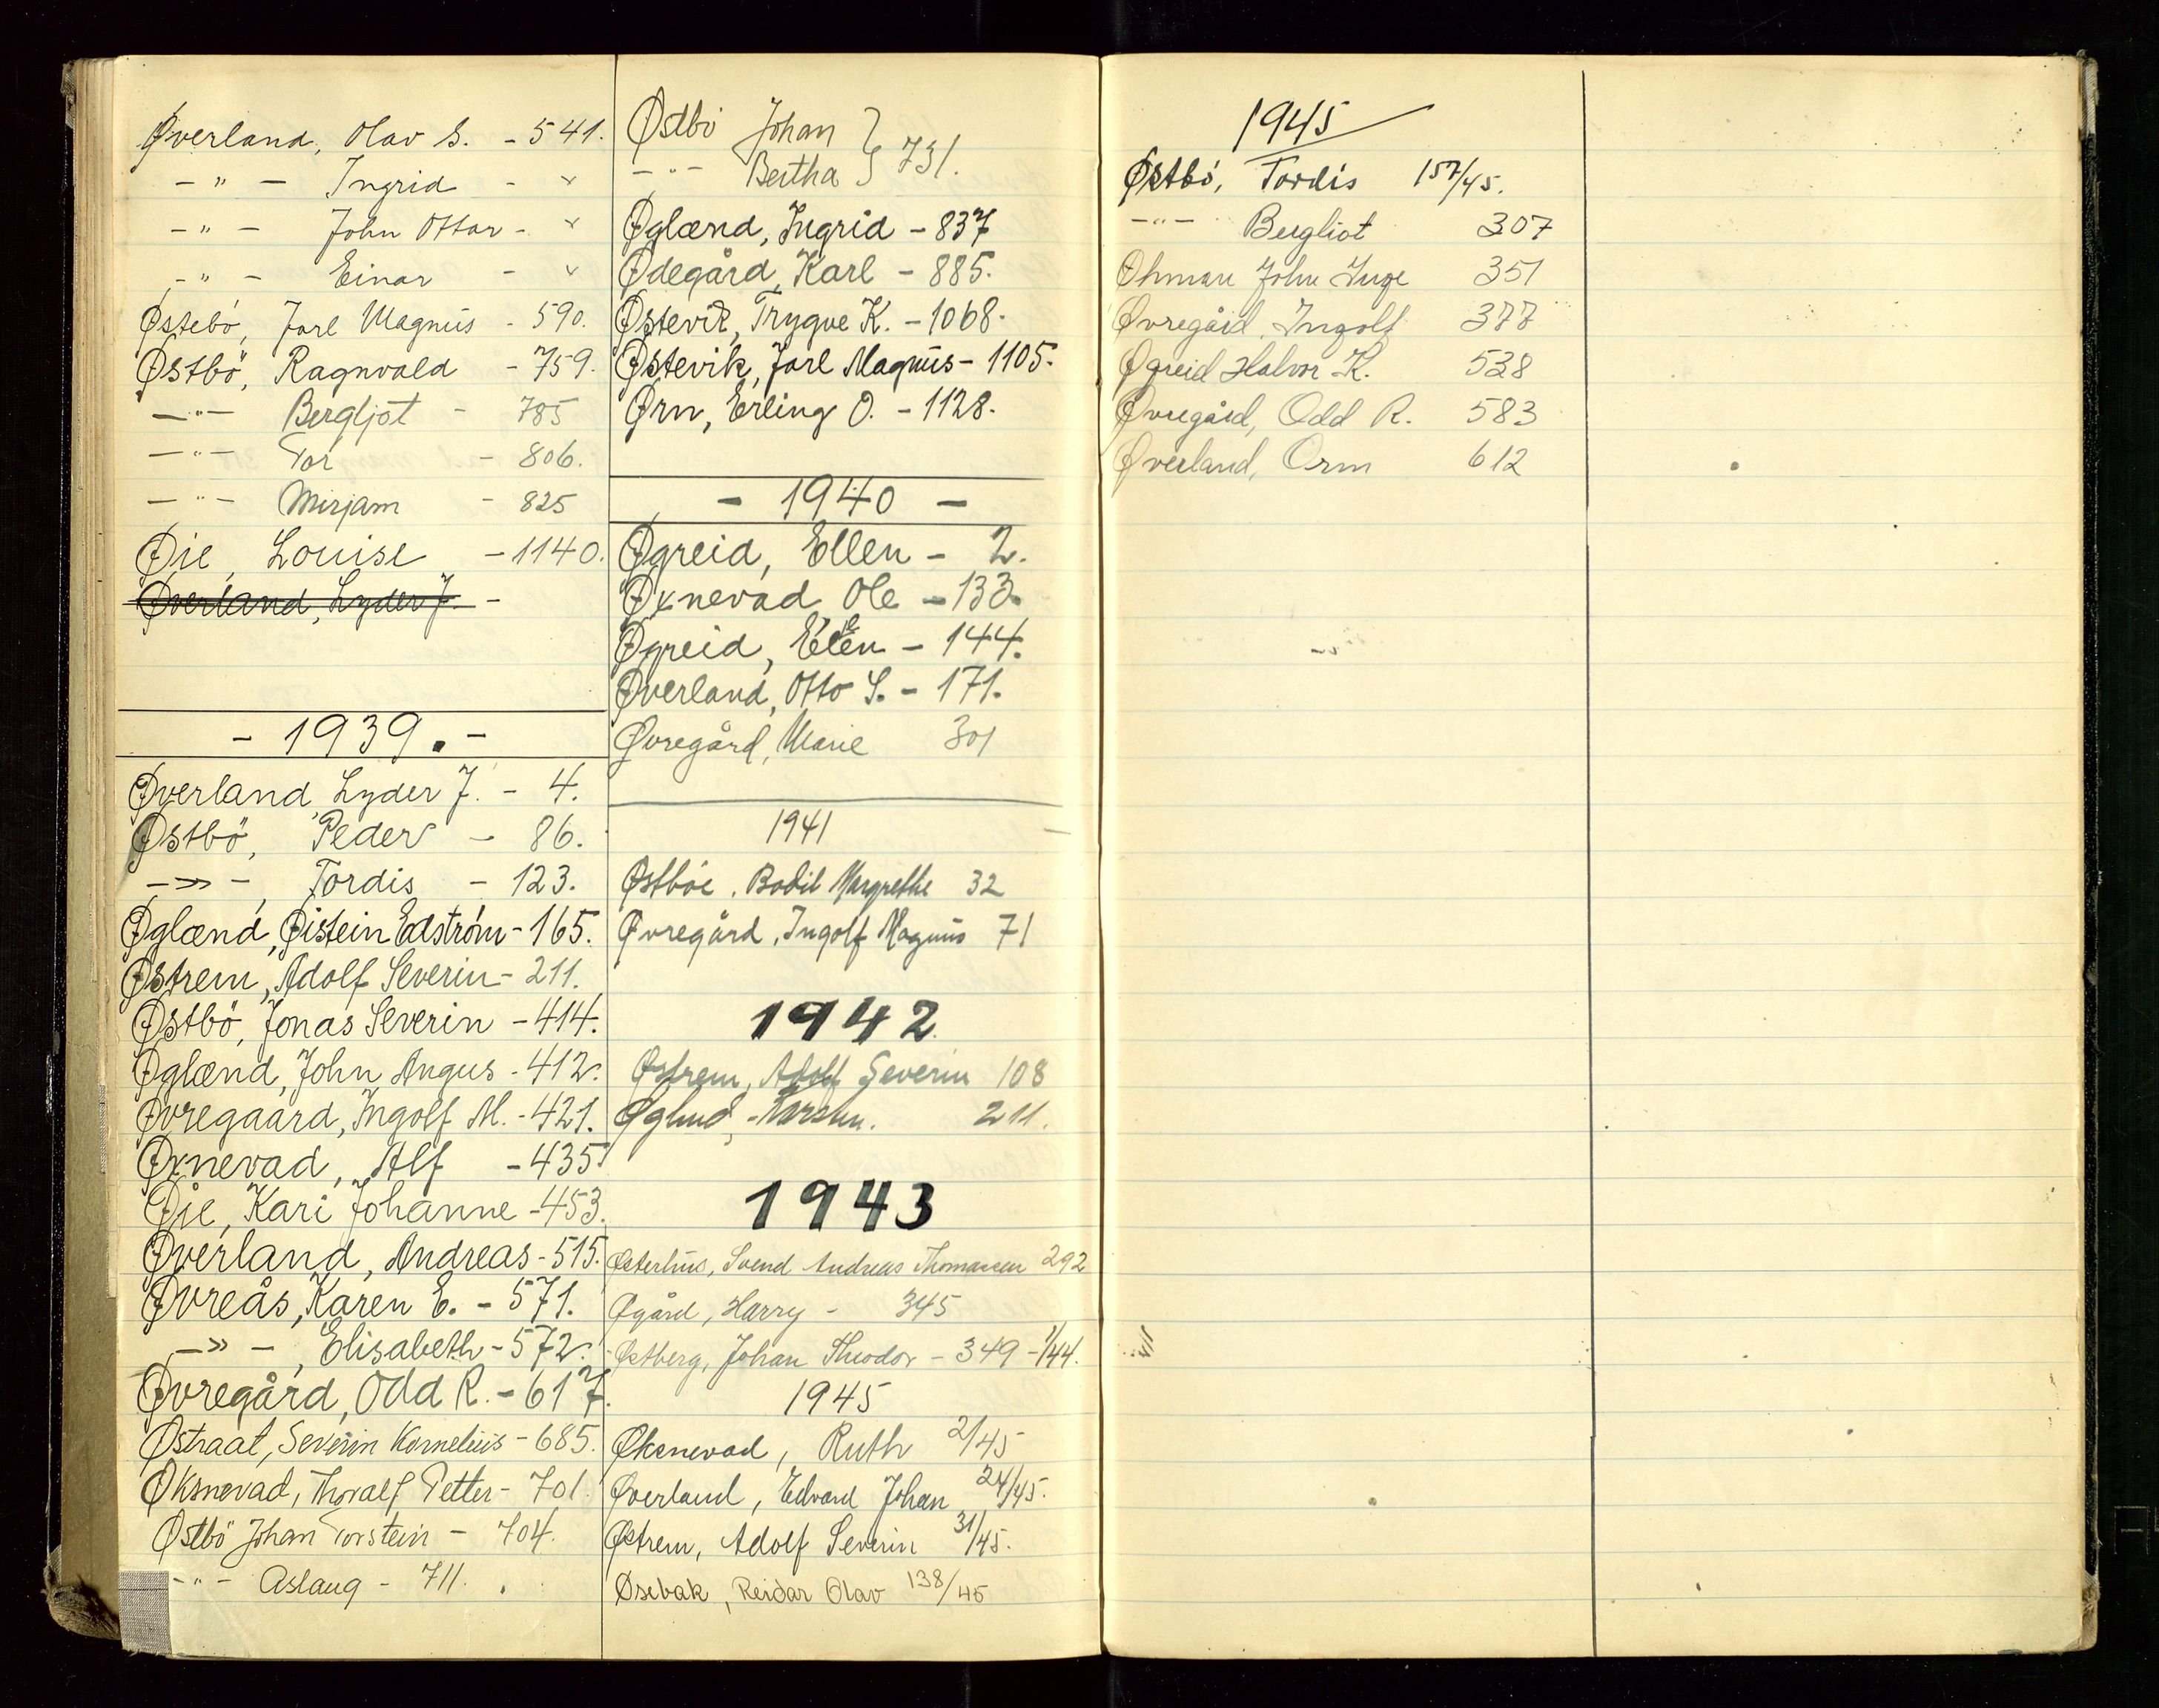 Øverland, Olav S. - 541.
- " - Ingrid - "
- " - John Ottar - "
- " - Einar - "
Østebö, Jarl Magnus - 590.
Østbö, Ragnvald - 759.
- " - Bergljot - 785
- " - Tor - 806.
- " - Mirjam - 825
Øie, Louise - 1140.
Øverland, Lyder J. -
- 1939. -
Øverland, Lyder J. - 4.
Østbö, Peder - 86.
- » -, Tordis - 123.
Øglænd, Øistein Edström - 165.
Østrem, Adolf Severin - 211.
Østbö, Jonas Severin - 414.
Øglænd, John Angus - 412.
Øvregaard, Ingolf M. - 421.
Øxnevad, Alf - 435
Øie, Kari Johanne - 453.
Øverland, Andreas - 515.
Øvreås, Karen E. - 571.
- » -, Elisabeth - 572.
Øvregård, Odd R. - 617.
Østraat, Severin Kornelius - 685.
Øksnevad, Thoralf Petter - 701.
Østbö Johan Torstein - 704.
- " - Aslaug - 711.
Østbö Johan } 731.
- " - Bertha
Øglænd, Ingrid - 837
Ødegård, Karl - 885.
Østevik, Trygve K. - 1068.
Østevik, Jarl Magnus - 1105.
Ørn, Erling O. - 1128.
- 1940 -
Øgreid, Ellen - 2.
Øxnevad Ole - 133.
Øgreid, Ellen - 144.
Øverland, Otto S. - 171.
Øvregård, Marie 301
1941
Østböe, Bodil Margrethe 32
Øvregård, Ingolf Magnus 71
1942
Østrem, Adolf Severin 108
Øglend, Karsten. 211.
1943
Østerhus, Svend Andreas Thomassen 292
Øgård, Harry - 345
Østberg, Johan Theodor - 349 - 1/44.
1945
Øksnevad, Ruth 2/45
Øverland, Edvard Johan 24/45.
Østrem, Adolf Severin 31/45.
Øsebak, Reidar Olav 138/45
1945
Østbö, Tordis 157/45.
- " - Bergliot 307
Øhman John Inge 351
Øvregård, Ingolf 377
Øgreid Halvor K. 528
Øvregård, Odd R. 583
Øverland, Orm 612